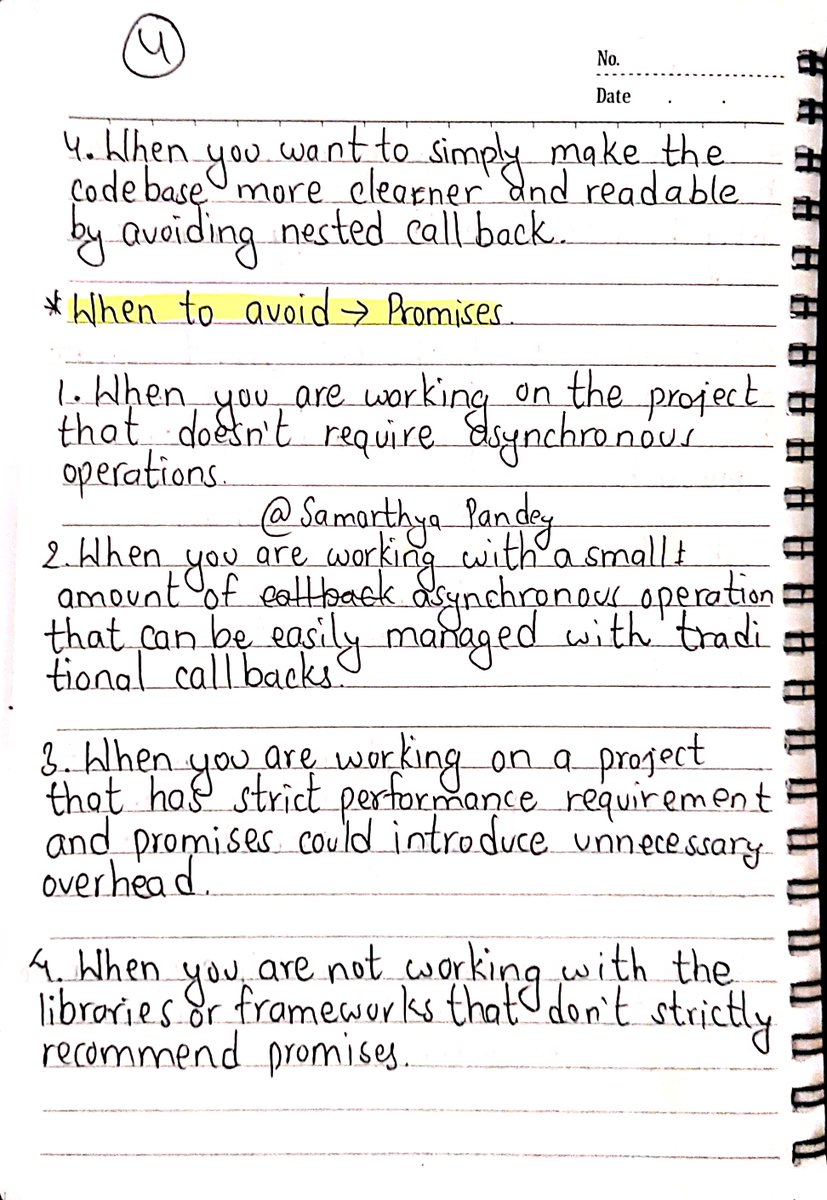 4
No.
Date . .
4. When you want to simply make the
codebase more clearner and readable
by avoiding nested call back.
* When to avoid → Promises.
1. When you are working on the project
that doesn't require asynchronous
operations.
@Samarthya Pandey
2. When you are working with a small
amount of callback asynchronous operation
that can be easily managed with tradi
tional callbacks.
3. When you are working on a project
that has strict performance requirement
and promises could introduce unnecessary
overhead.
4. When you are not working with the
libraries or frameworks that don't strictly
recommend promises.